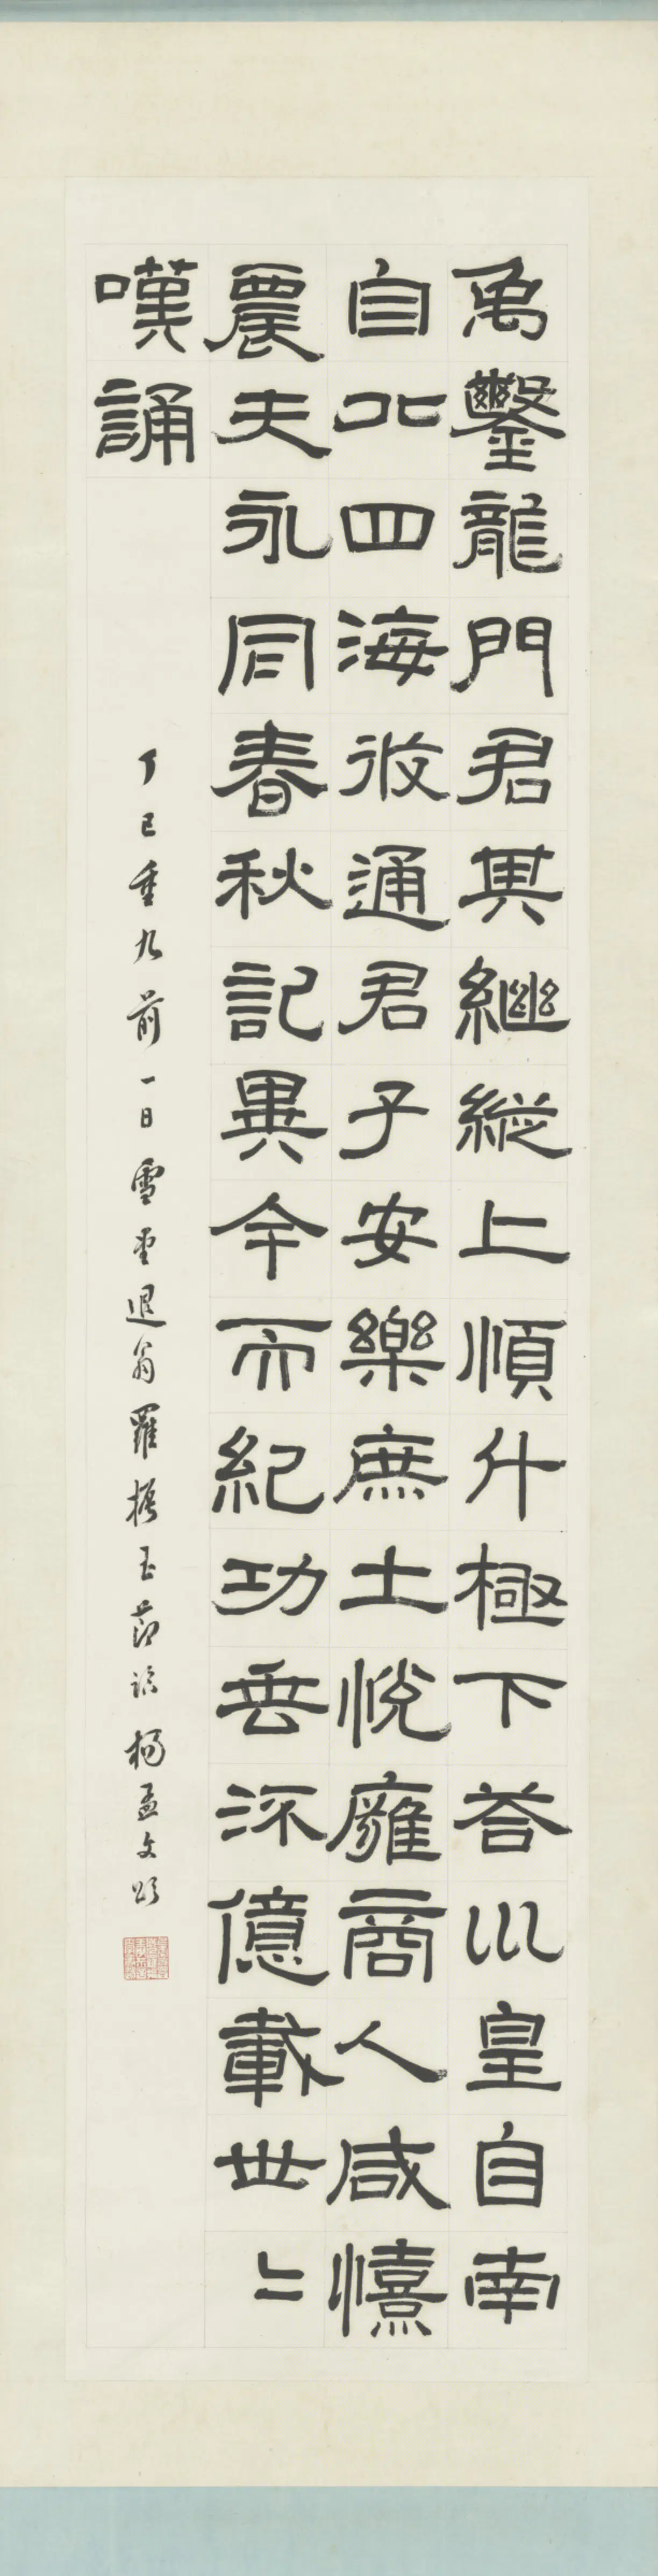 禹鑿龍門君其繼縱上順什極下荅巛皇自南
自北四海攸通君子安樂庶士悅雍商人咸憘
農夫永同春秋記異今而紀功垂流億載世〻
嘆誦
丁巳重九前一日雪堂退翁羅振玉節臨楊孟文頌